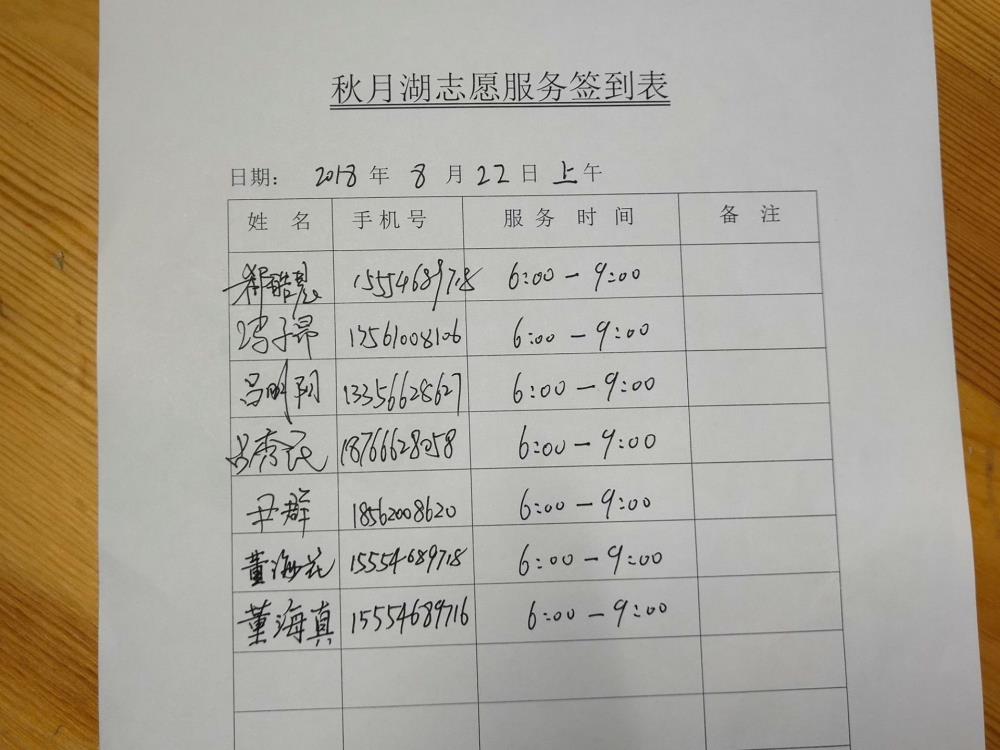 秋月湖志愿服务签到表
日期： 2018 年 8 月 22 日 上午
姓 名 手机号 服 务 时 间 备 注
郝皓晨 15554689718 6:00-9:00
冯子昂 13561008106 6:00-9:00
吕明阳 13356628627 6:00-9:00
秀 18766628058 6:00-9:00
尹群 18562008620 6:00-9:00
董海花 15554689718 6:00-9:00
董海真 15554689716 6:00-9:00